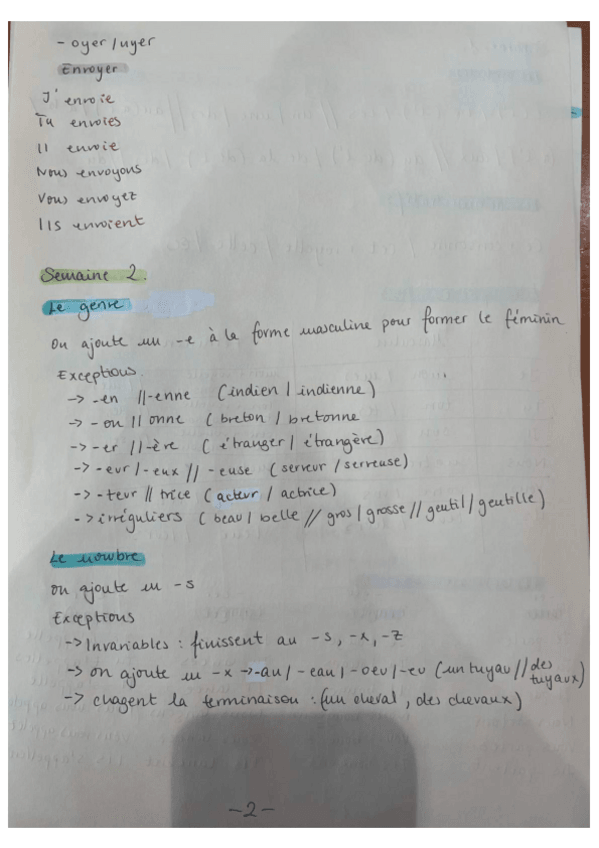 - oyer / uyer
Envoyer
J' envoie
Tu envoies
Il envoie
Nous envoyons
Vous envoyez
Ils envoient
Semaine 2.
Le genre
on ajoute un -e à la forme masculine pour former le féminin
Exceptions.
-> -en // -enne (indien / indienne)
-> -on // onne (breton / bretonne
-> -er // -ère (étranger / étrangère)
-> -eur / -eux // -euse (serveur / serveuse)
-> -teur // trice (acteur / actrice)
-> irréguliers (beau / belle // gros / grosse // gentil / gentille)
Le nombre
on ajoute un -s
Exceptions
-> Invariables : finissent au -s, -x, -z
-> on ajoute un -x -> -au / -eau / -oeu / -eu (un tuyau // des tuyaux)
-> chagent la terminaison : (un cheval, des chevaux)
-2-